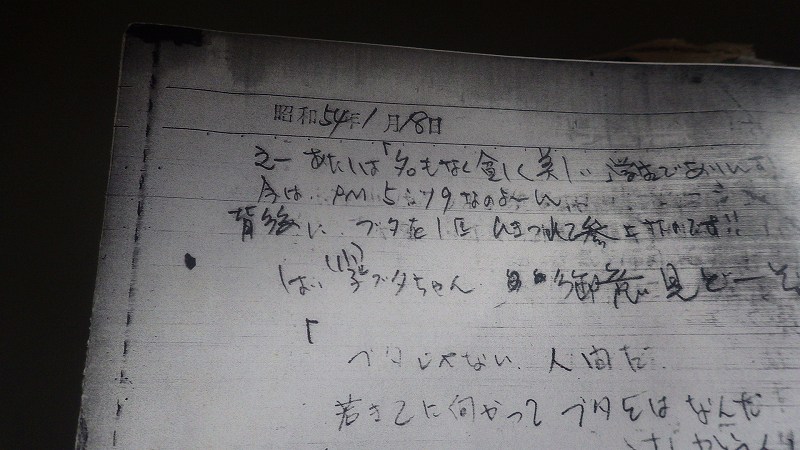 昭和54年1月18日
えー あたしは「名もなく貧しく美しい学生でありんす
今は、PM 5:49なのよーん
背後に ブタを1匹 ひきつれて参上
はい ブタちゃん 御意見どーぞ
「
ブタじゃない、人間だ.
若き乙に向かって ブタとはなんだ